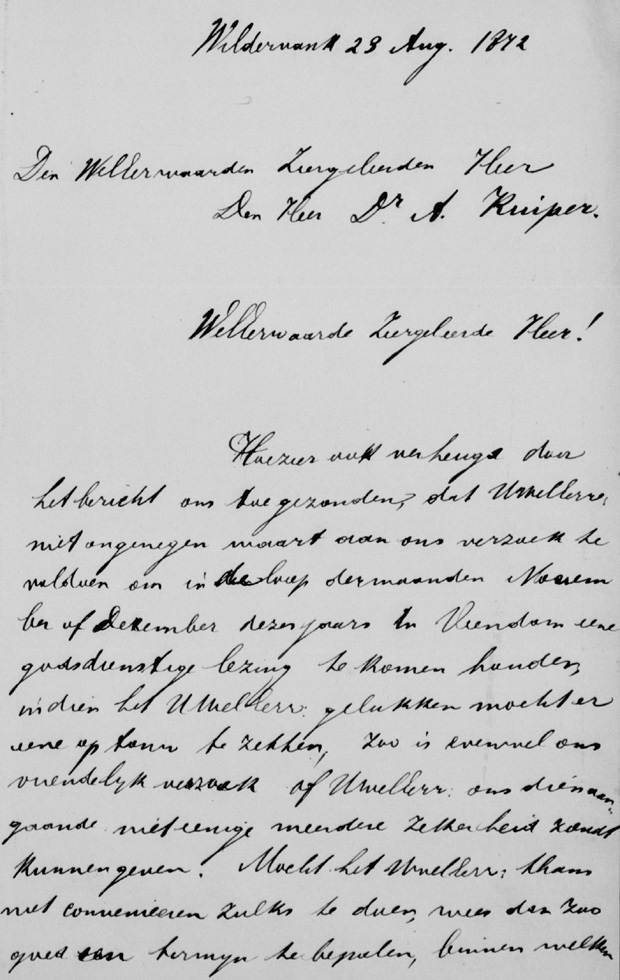 Wildervank 23 Aug. 1872
Den WelEerwaarden Zeergeleerden Heer
Den Heer Dr. A. Kuiper.
WelEerwaarde Zeergeleerde Heer!
Hoezeer ook verheugd door
het bericht ons toegezonden, dat UwelEerw:
niet ongenegen waart aan ons verzoek te
voldoen om in de loop der maanden Novem
ber of December dezes jaars te Veendam eene
godsdienstige lezing te komen houden,
indien het UwelEerw: gelukken mocht er
eene op touw te zetten, zoo is evenwel ons
vriendelijk verzoek of UwelEerw: ons dienaan-
gaande niet eenige meerdere zekerheid zoudt
kunnen geven. Mocht het UwelEerw: thans
niet convenieeren zulks te doen, wees dan zoo
goed een termijn te bepalen, binnen welken